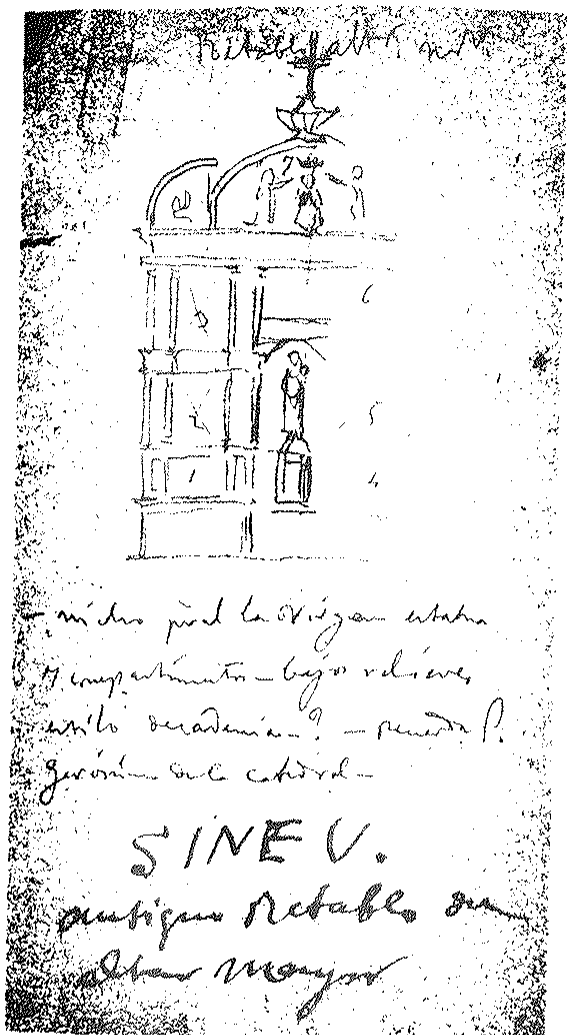 Retablo alto
7
6
5
1
4
nicho pral la Virgen estatua
7 compartimentos - bajos relieves
estilo decadencia - ? - recuerda P.
Gerónimo de la catedral -
SINEU.
antiguo Retablo del
altar mayor